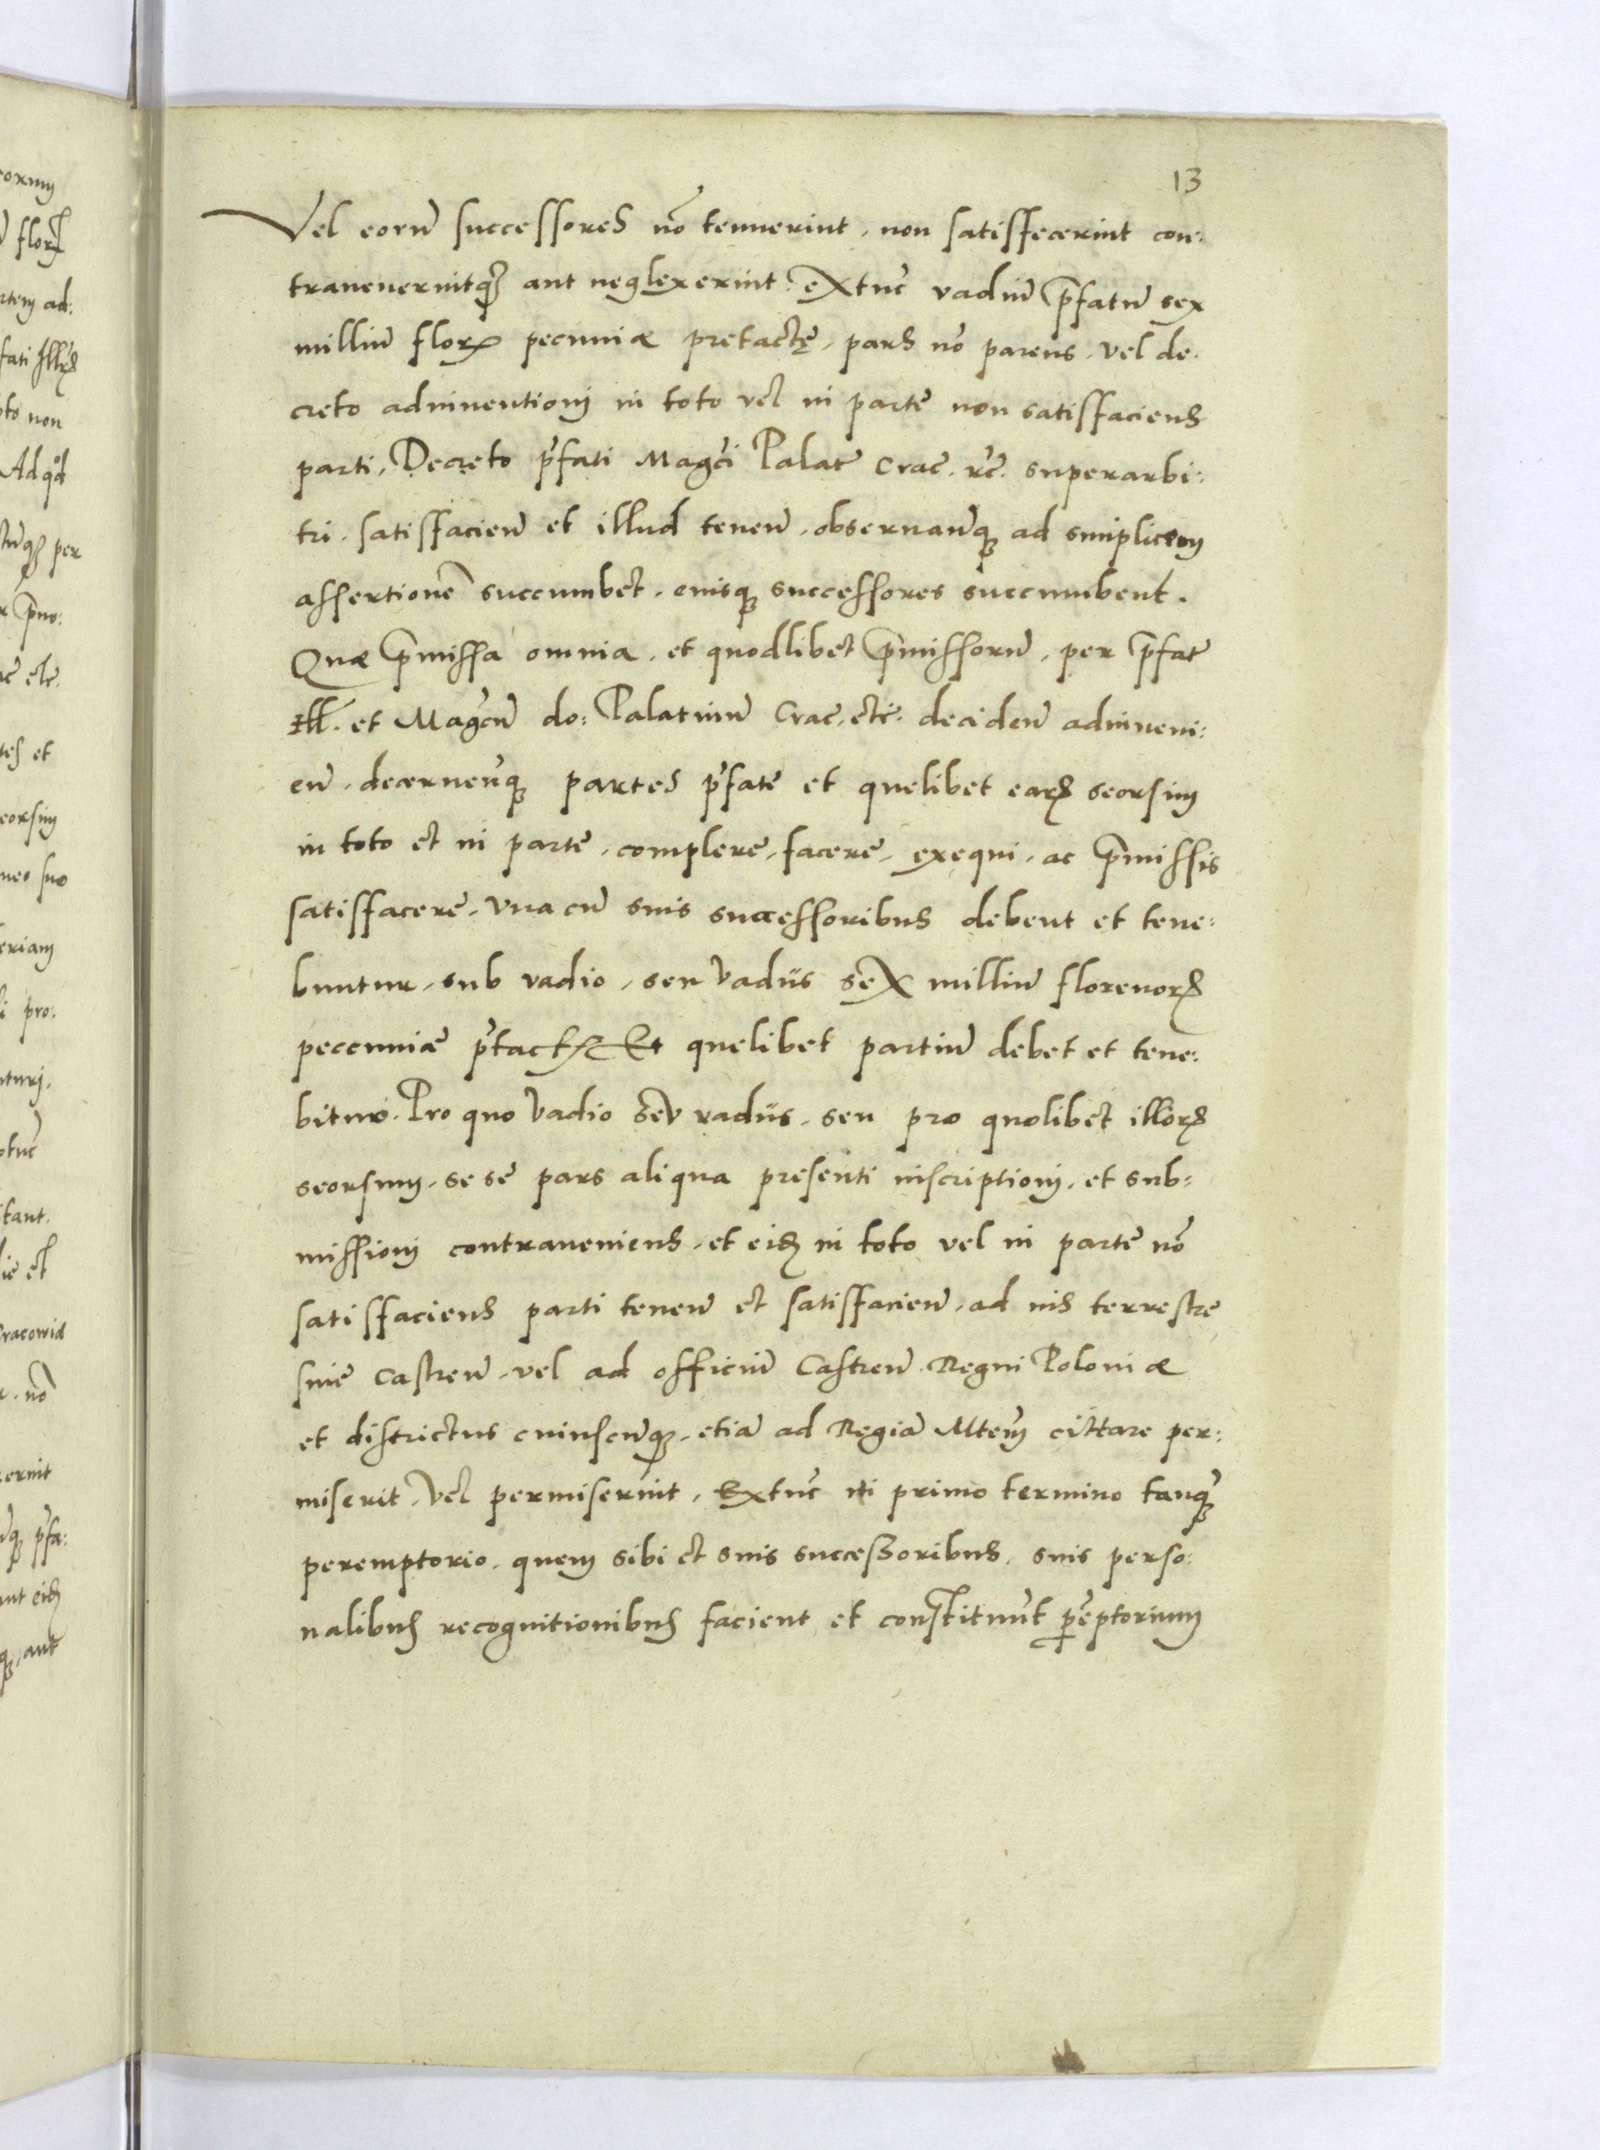 13
Vel eorū successores nō tenuerint, non satisfecerint con:
traneuerintq̄ȝ aut neglexerint. extūc vadiū p̄fatū sex
milliū florꝝ pecuniæ pretactę, pars nō parens, vel de
creto adinuentioni in toto vel in parte non satisfaciens
parti, Decreto p̄fati Mag̃ci Palat̄ Crac̄. ꝛc̄. superarbi:
tri. satisfacieñ et illud teneñ, obseruañq; ad simplicem
assertionē succumbet, eiusq; successores succumbent.
Quæ p̄missa omnia, et quodlibet p̄missorū, per p̄fat̄
Ill. et Mag̃cū do: Palatinū Crac̄, etc̄. decideñ adinueni:
eñ, decerneñq; partes p̄fatē et quelibet earꝝ seorsim
in toto et in parte, complere, facere, exequi, ac p̄missis
satisfacere, Vna cū suis successoribus debent et tene:
buntur, sub vadio, seu Vadiis sex milliū florenorꝝ
peccuniæ p̄tactæ Et quelibet partiū debet et tene:
bitur. Pro quo Vadio seu vadiis, seu pro quolibet illorꝝ
seorsim, se se pars aliqua presenti inscriptioni, et sub:
missioni contraueniens, et eidē in toto vel in parte nō
satisfaciens parti teneñ et satisfacieñ, ad ius terrestre
siue Castreñ, vel ad officiū Castreñ Regni Poloniæ
et districtus cuiuscūq;, etiā ad Regiā Mtem̄ cittare per:
miserit, Vel permiserint, Extūc in primo termino tanq̄;
peremptorio, quem sibi et suis successoribus, suis perso:
nalibus recognitionibus facient et constituūt ꝑēptorium